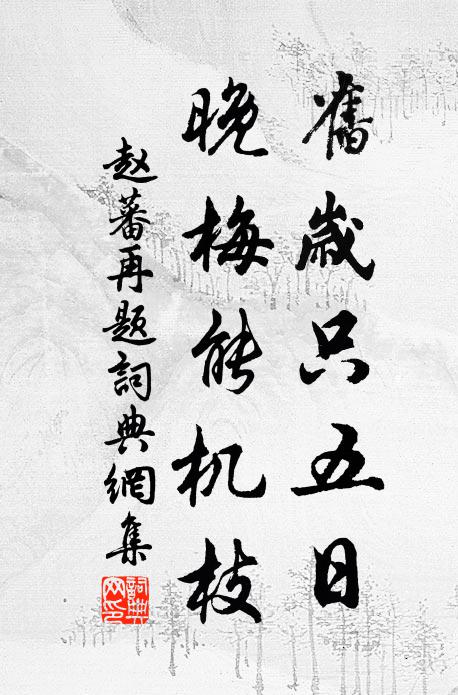 舊歲只五日
晚梅能机枝
赵蕃再题詞典網集